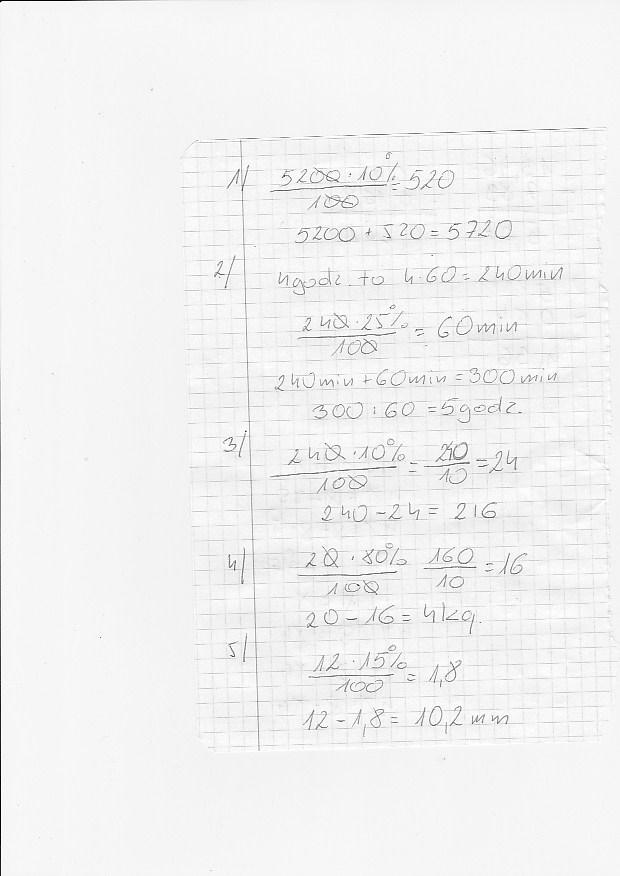 1/ 5200 · 10% / 100 = 520
5200 + 520 = 5720
2/ 4godz. to 4·60 = 240min
240 · 25% / 100 = 60min
240min + 60min = 300min
300 : 60 = 5godz.
3/ 240 · 10% / 100 = 240 / 10 = 24
240 - 24 = 216
4/ 20 · 80% / 100 160 / 10 = 16
20 - 16 = 4kg.
5/ 12 · 15% / 100 = 1,8
12 - 1,8 = 10,2mm